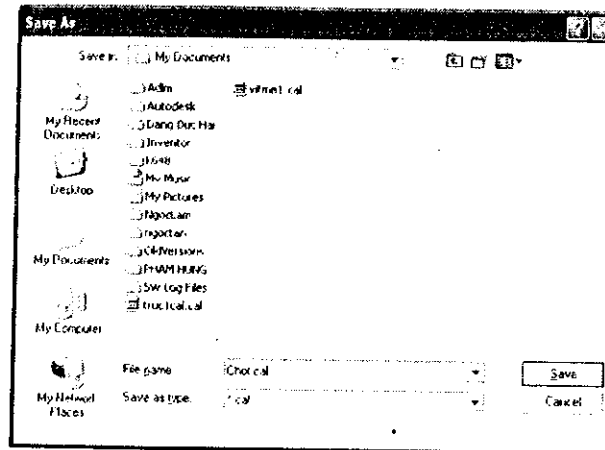 Save As
Save in: My Documents
My Recent Documents
Desktop
My Documents
My Computer
My Network Places
Adlm
Autodesk
Dang Duc Hai
Inventor
k648
My Music
My Pictures
NgocLam
ngoctan
OldVersions
PHAM HUNG
SW Log Files
truc1cal.cal
vitme1.cal
File name: Chot.cal
Save
Save as type: *.cal
Cancel